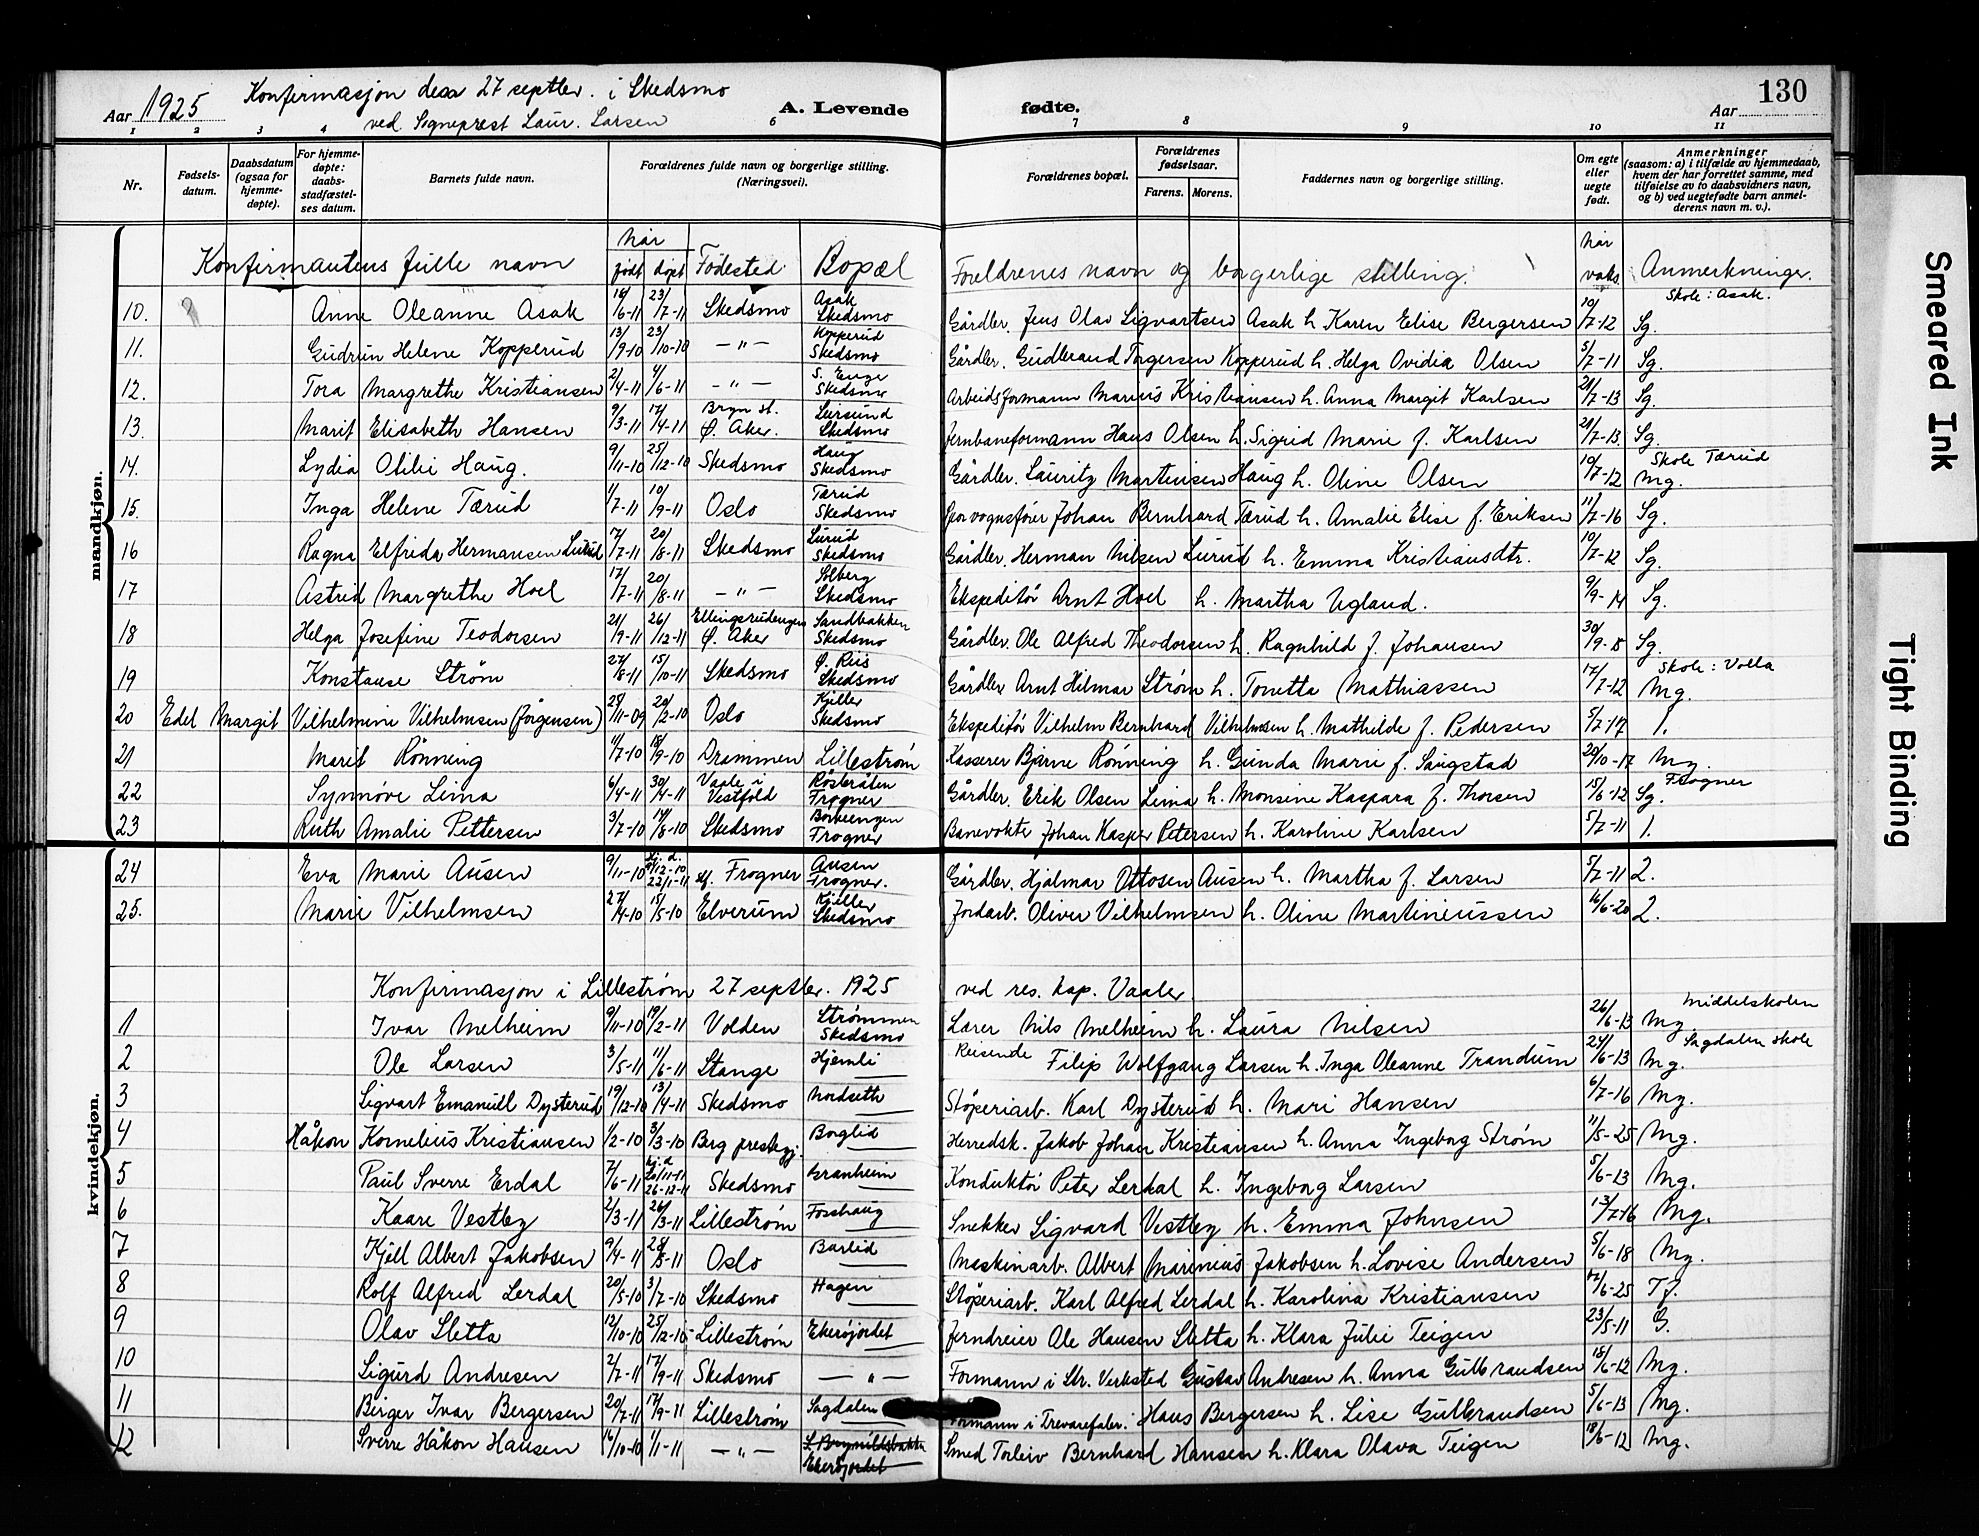 Aar 1925 Konfirmasjon den 27 septbr. i Skedsmo
ved Sogneprest Laur. Larsen
A. Levende fødte.
Aar 130
1 2 3 4 6 7 8 9 10 11
Nr. Fødsels-datum. Daabsdatum (ogsaa for hjemme-døpte). For hjemme-døpte: daabs-stadfæstel-ses datum. Barnets fulde navn. Forældrenes fulde navn og borgerlige stilling. (Næringsvei). Forældrenes bopæl. Forældrenes fødselsaar. Farens. Morens. Faddernes navn og borgerlige stilling. Om egte eller uegte født. Anmerkninger (saasom: a) i tilfælde av hjemmedaab, hvem der har forrettet samme, med tilføielse av to daabsvidners navn, og b) ved uegtefødte barn anmel-derens navn m. v.).
mandkjøn.
Konfirmantens fulle navn Når født døpt Fødested Bopæl Foreldrenes navn og borgerlige stilling. Når vaks. Anmerkninger.
10. Anne Oleanne Asak 16/6-11 23/7-11 Skedsmo Asak Skedsmo Gårdbr. Jens Olav Sigvartsen Asak h. Karen Elise Bergersen 10/7-12 Sg. Skole: Asak.
11. Gudrun Helene Kopperud 13/9-10 23/10-10 -"- Kopperud Skedsmo Gårdbr. Gudbrand Torgersen Kopperud h. Helga Ovidia Olsen 5/7-11 Sg.
12. Tora Margrethe Kristiansen 2/4-11 4/6-11 -"- S. Enge Skedsmo Arbeidsformann Marius Kristiansen h. Anna Margit Karlsen 21/7-13 Sg.
13. Marit Elisabeth Hansen 9/3-11 17/4-11 Bryn st. Ø. Aker. Lersund Skedsmo Jernbaneformann Hans Olsen h. Sigrid Marie f. Karlsen 21/7-13. Sg.
14. Lydia Otilie Haug. 9/11-10 25/12-10 Skedsmo Haug Skedsmo Gårdbr. Lauritz Martinsen Haug h. Oline Olsen 10/7-12 Mg. Skole Tærud
15. Inga Helene Tærud 1/7-11 10/9-11 Oslo Tærud Skedsmo Sporvognsfører Johan Bernhard Tærud h. Amalie Elise f. Eriksen 11/7-16 Sg.
16 Ragna Elfrida Hermansen Lurud 7/7-11 20/8-11 Skedsmo Lurud Skedsmo Gårdbr. Herman Nilsen Lurud h. Emma Kristiansdtr. 10/7-12 Sg.
17 Astrid Margrethe Hoel 17/7-11 20/8-11 -"- Solberg Skedsmo Ekspeditør Arnt Hoel h. Martha Ugland. 9/9-14 Sg.
18 Helga Josefine Teodorsen 21/9-11 26/12-11 Ellingsrudengen Ø. Aker Sandbakken Skedsmo Gårdbr. Ole Alfred Theodorsen h. Ragnhild f. Johansen 30/9-15 Sg.
19 Konstanse Strøm 27/8-11 15/10-11 Skedsmo Ø. Riis Skedsmo Gårdbr. Arnt Hilmar Strøm h. Tonetta Mathiassen 17/7-12 Mg. Skole: Volla
20 Edel Margit Vilhelmine Vilhelmsen (Jørgensen) 25/11-09 20/2-10 Oslo Kjeller Skedsmo Ekspeditør Vilhelm Bernhard Vilhelmsen h. Mathilde f. Pedersen 5/7-17 1.
21 Marit Rönning 1/7-10 18/9-10 Drammen Lillestrøm Kasserer Bjarne Rønning h. Gunda Marie f. Saugstad 20/10-17 Mg.
22 Synnøve Lima 6/4-11 30/4-11 Vaale i Vestfold Røseråten Frogner Gårdbr. Erik Olsen Lima h. Monsine Kaspara f. Thorsen 15/6-12 Sg. Frogner
23 Ruth Amalie Pettersen 3/7-10 14/8-10 Skedsmo Frogner Banevokter Johan Kasper Petersen h. Karoline Karlsen 5/7-11 1.
24 Eva Marie Ausen 9/11-10 22/1-11 Frogner Ausen Frogner. Gårdbr. Hjalmar Ottosen Ausen h. Martha f. Larsen 5/7-11 2.
25. Marie Vilhelmsen 27/4-10 15/5-10 Elverum Kjeller Skedsmo Jordarb. Oliver Vilhelmsen h. Oline Martineussen 16/6-20 2.
kvindekjøn.
Konfirmasjon i Lillestrøm 27 septbr. 1925 ved res. kap. Vaaler.
1 Ivar Melheim 9/11-10 19/2-11 Volden Strømmen Skedsmo Lærer Nils Melheim h. Laura Nilsen 26/6-13 Mg Middelskolen
2 Ole Larsen 3/5-11 11/6-11 Stange Hjemli Reisende Filip Wolfgang Larsen h. Inga Oleanne Trandum 24/6-13 Mg. Sagdalen skole
3 Sigvart Emanuell Dysterud 19/12-10 13/4-11 Skedsmo Nordseth Støperiarb. Karl Dysterud h. Mari Hansen 6/7-16 Mg.
4 Håkon Kornelius Kristiansen 1/2-10 3/3-10 Berg prestegj. Borglid Herredsk. Jakob Johan Kristiansen h. Anna Ingeborg Strøm 11/5-25 Mg.
5 Paul Sverre Erdal 7/6-11 26-12-11 Skedsmo Granheim Konduktør Peter Lerdal h. Ingeborg Larsen 5/6-13 Mg.
6 Kaare Vestby 2/3-11 26/3-11 Lillestrøm Fosshaug Snekker Sigvard Vestby h. Emma Johnsen 13/7-16 Mg.
7 Kjell Albert Jakobsen 9/4-11 28/5-11 Oslo Barlid Maskinarb. Albert Marinius Jakobsen h. Lovise Andersen 5/6-18 Mg.
8 Rolf Alfred Lerdal 20/5-10 3/7-10 Skedsmo Hagen Støperiarb. Karl Alfred Lerdal h. Karolina Kristiansen /6-25 Tf.
9 Olav Sletta 12/10-10 25/12-10 Lillestrøm Ekerøjordet Jerndreier Ole Hansen Sletta h. Klara Julie Teigen 23/5-11 G.
10 Sigurd Andresen 2/7-11 17/9-11 Skedsmo -"- Formann i Str. Verksted Gustav Andresen h. Anna Gulbrandsen 18/6-12 Mg.
11 Birger Ivar Bergersen 20/7-11 17/9-11 Lillestrøm Sagdalen Formann i Trevarefabr. Hans Bergersen h. Lise Gulbrandsen 5/6-13 Mg.
12 Sverre Håkon Hansen 16/10-10 1/1-11 -"- Ekerøjordet Smed Torleiv Bernhard Hansen h. Klara Olava Teigen 18/6-12 Mg.
Smeared Ink
Tight Binding